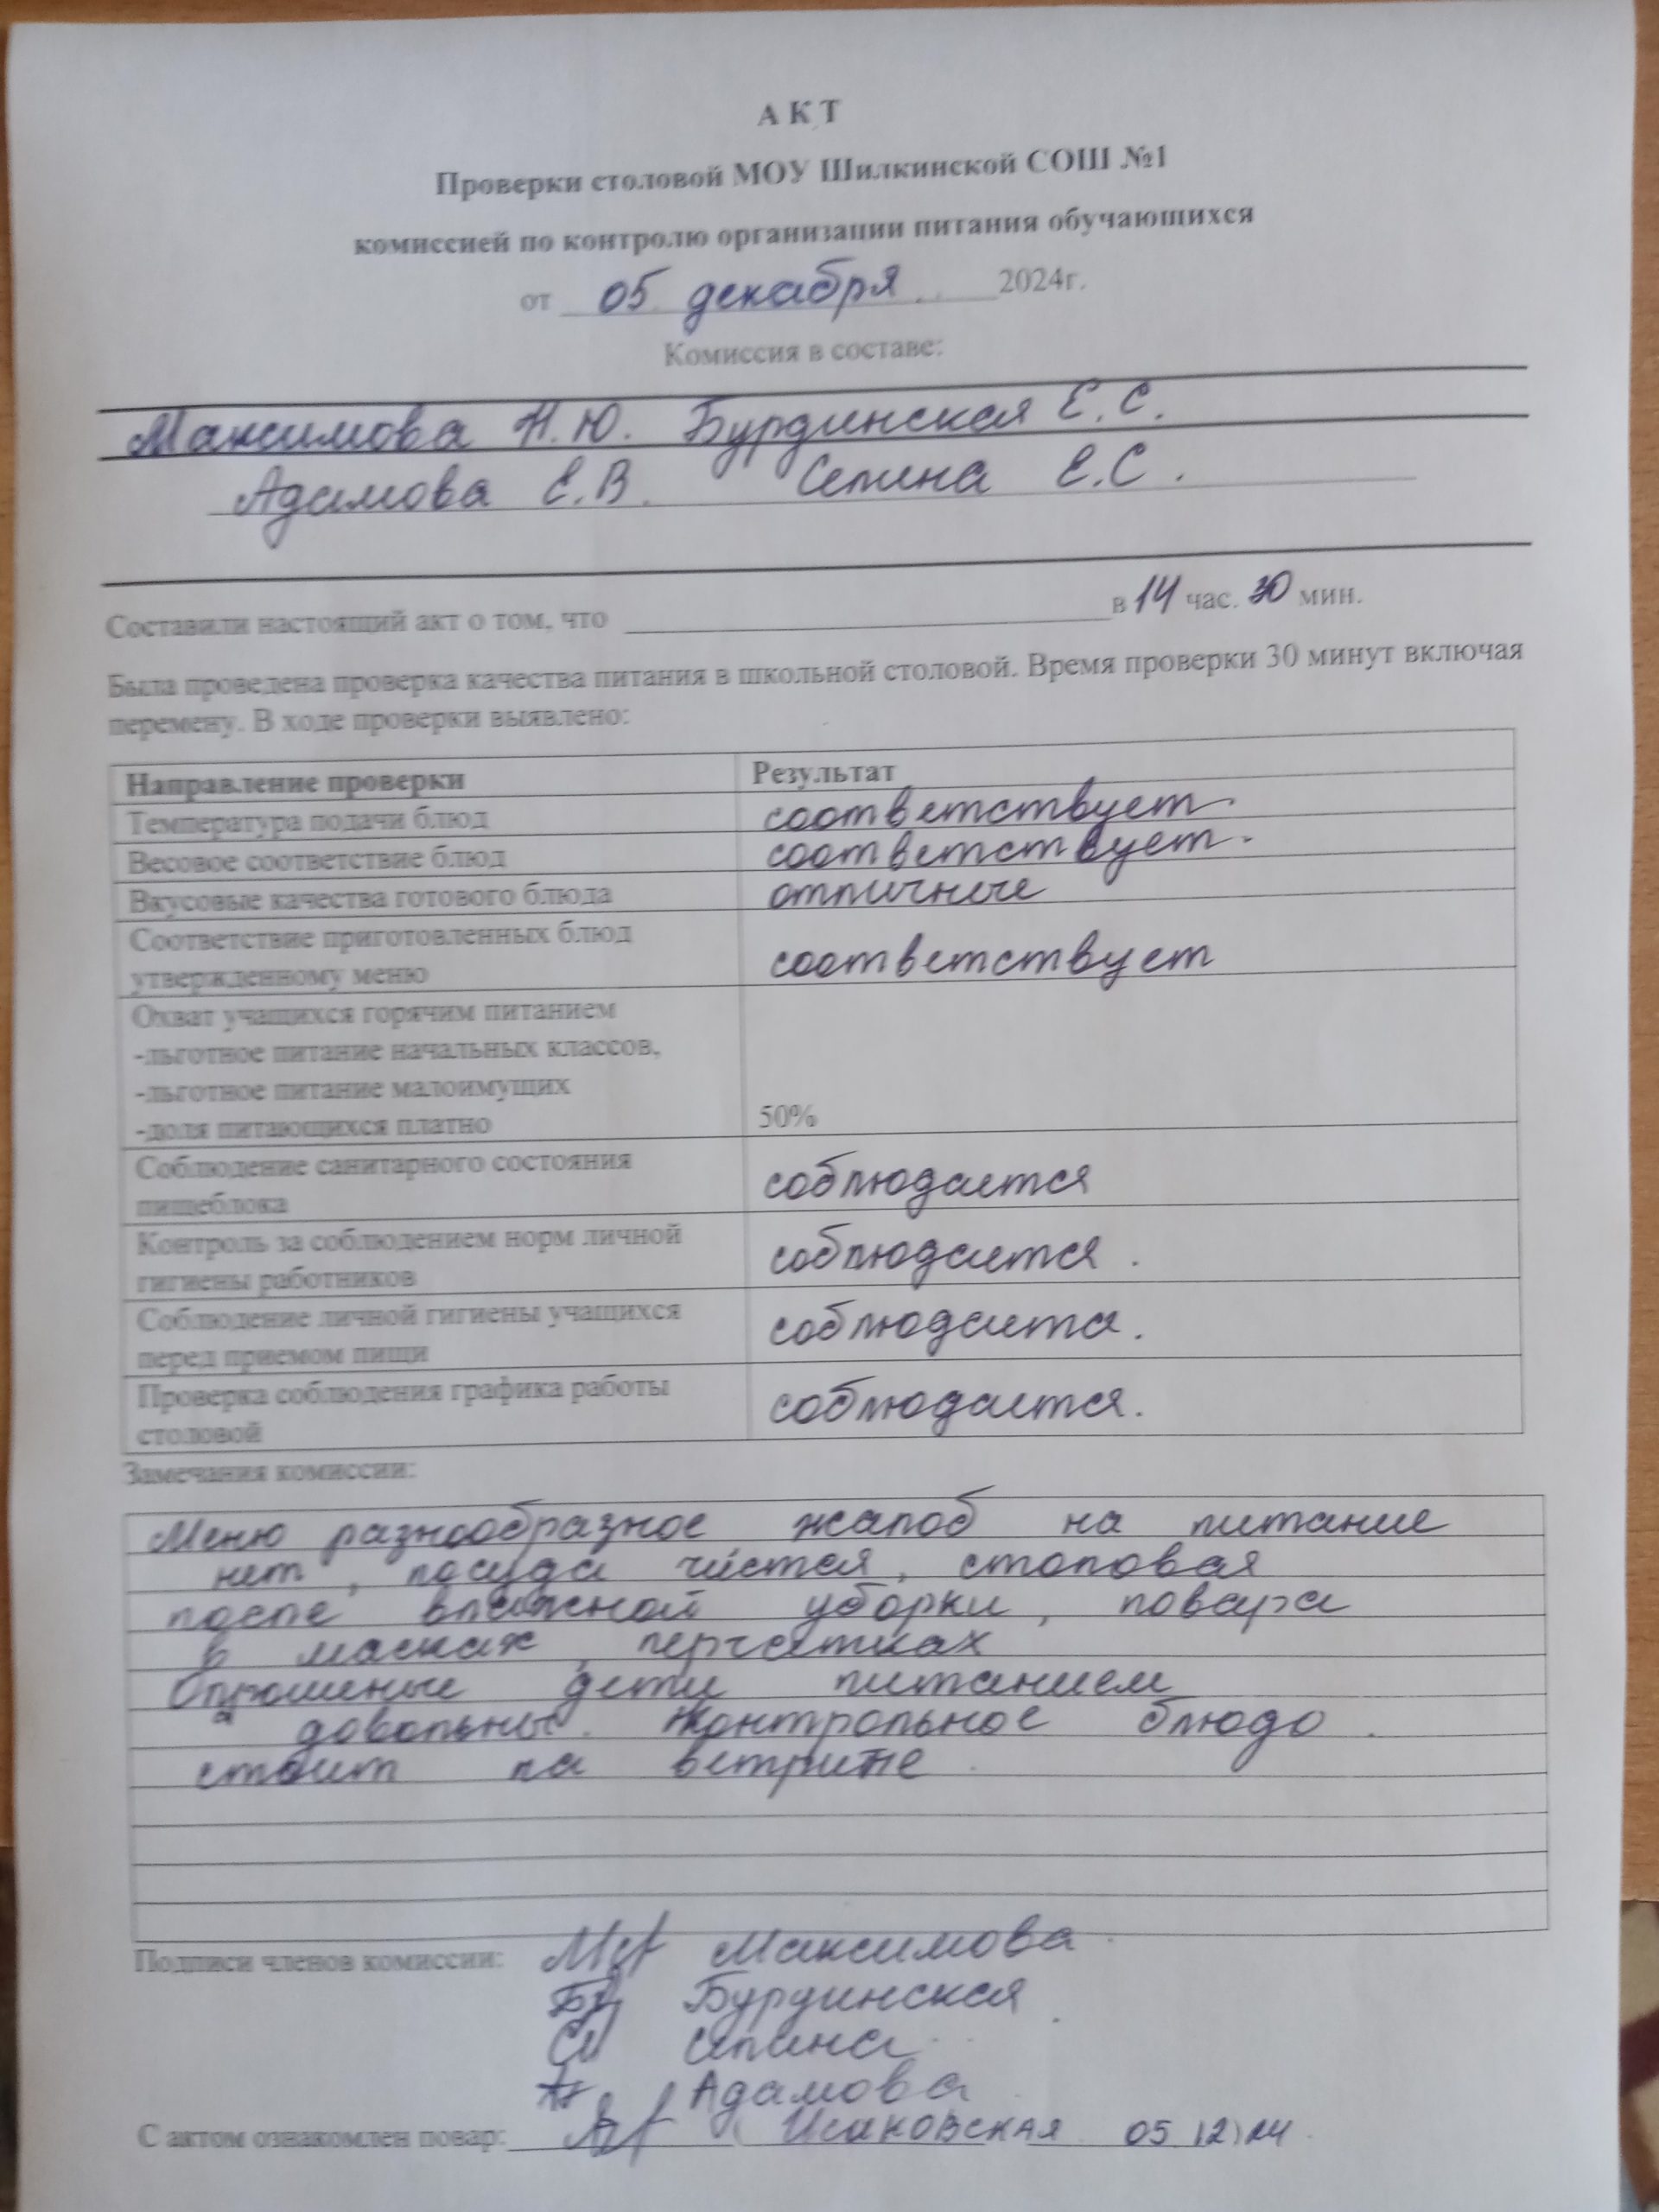 АКТ
Проверки столовой МОУ Шилкинской СОШ №1
комиссией по контролю организации питания обучающихся
от 05 декабря 2024г.
Комиссия в составе:
Максимова Н.Ю. Бурдинская Е.С.
Адамова Е.В. Е.С.
Составили настоящий акт о том, что в 14 час. 30 мин.
Была проведена проверка качества питания в школьной столовой. Время проверки 30 минут включая
перемену. В ходе проверки выявлено:
Направление проверки Результат
Температура подачи блюд соответствует.
Весовое соответствие блюд соответствует.
Вкусовые качества готового блюда отличные
Соответствие приготовленных блюд
утвержденному меню соответствует
Охват учащихся горячим питанием
-льготное питание начальных классов,
-льготное питание малоимущих
-доля питающихся платно 50%
Соблюдение санитарного состояния
пищеблока соблюдается
Контроль за соблюдением норм личной
гигиены работников соблюдается.
Соблюдение личной гигиены учащихся
перед приемом пищи соблюдается.
Проверка соблюдения графика работы
столовой соблюдается.
Замечания комиссии:
Меню разнообразное жалоб на питание
нет, посуда чистая, столовая
после влажной уборки, повара
в масках, перчатках
Опрошеные дети питанием
довольны. Контрольное блюдо
стоит на ветрине.
Подписи членов комиссии: Максимова
Бурдинская
Адамова
С актом ознакомлен повар: 05.12.24